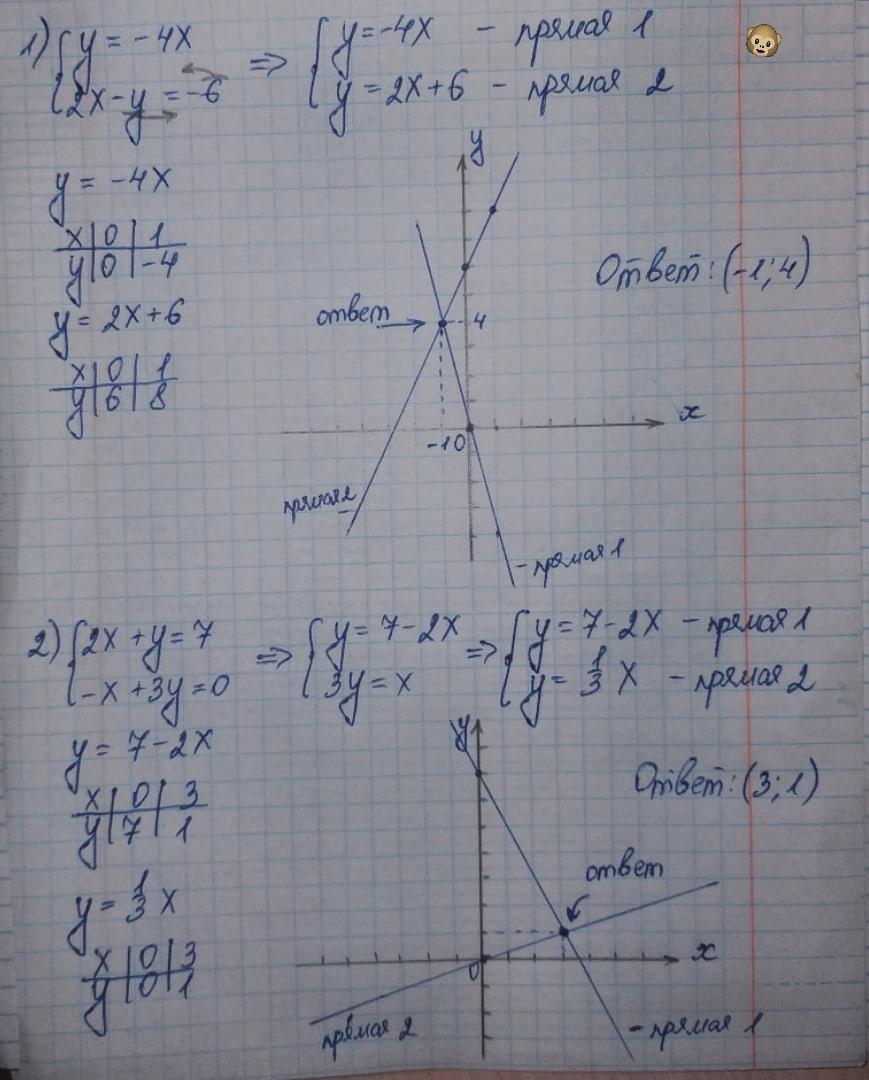 1) { y = -4x ⇒ { y = -4x - прямая 1
2x - y = -6 y = 2x + 6 - прямая 2
y = -4x
x | 0 | 1
y | 0 | -4
y = 2x + 6
x | 0 | 1
y | 6 | 8
y
ответ
4
-1 0
x
прямая 2
- прямая 1
Ответ: (-1; 4)
2) { 2x + y = 7 ⇒ { y = 7 - 2x ⇒ { y = 7 - 2x - прямая 1
-x + 3y = 0 3y = x y = 1/3 x - прямая 2
y = 7 - 2x
x | 0 | 3
y | 7 | 1
y = 1/3 x
x | 0 | 3
y | 0 | 1
y
Ответ: (3; 1)
ответ
x
0
прямая 2
- прямая 1